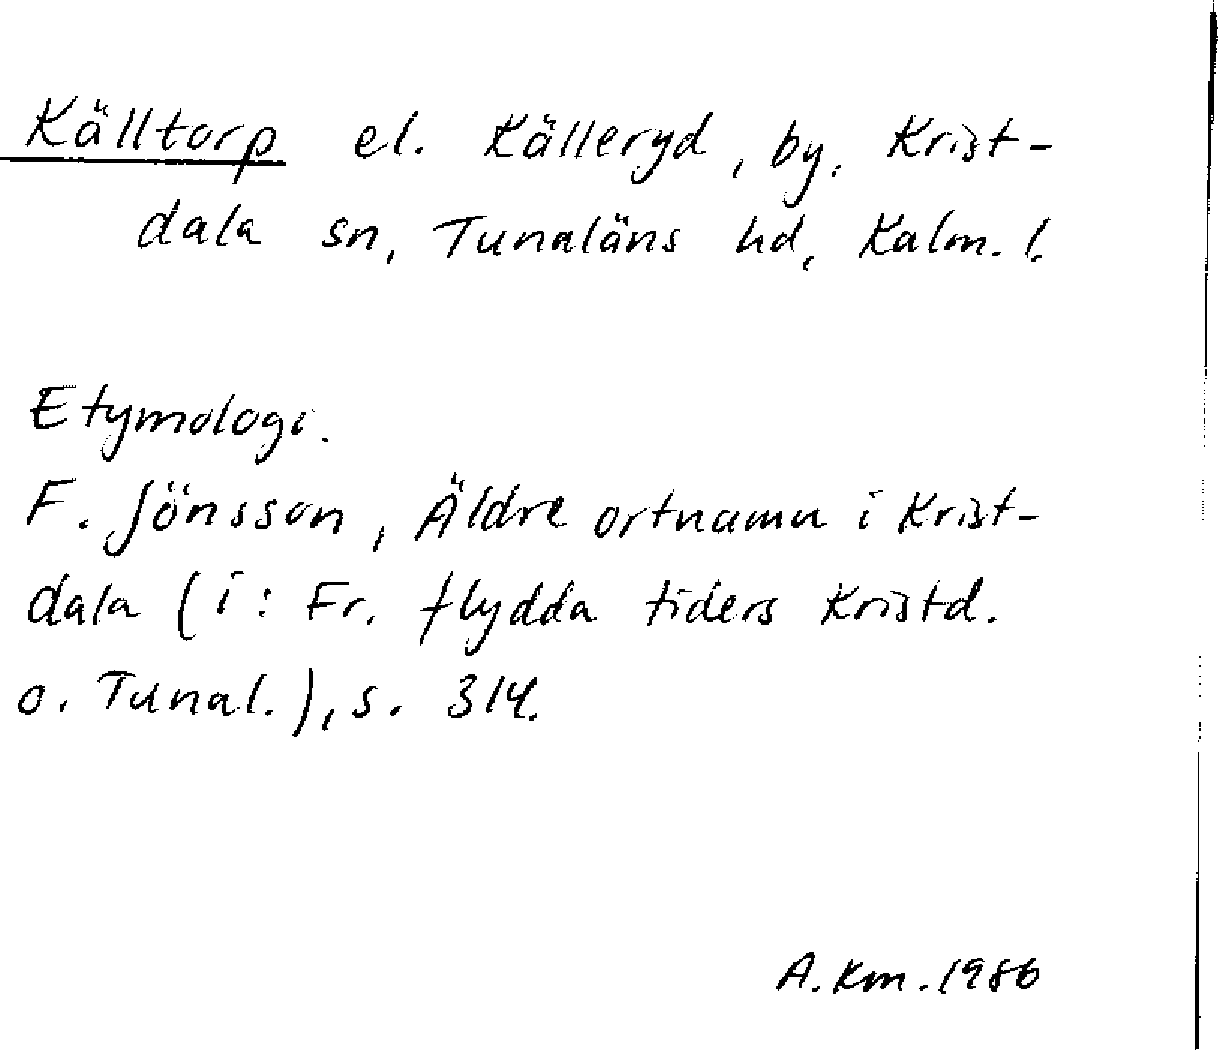 Källtorp el. Källeryd, by, Krist-
dala sn, Tunaläns hd, Kalm. l.
Etymologi.
F. Jönsson, Äldre ortnamn i Krist-
dala (i: Fr. flydda tiders Kristd.
o. Tunal.), s. 314.
A. Km. 1986